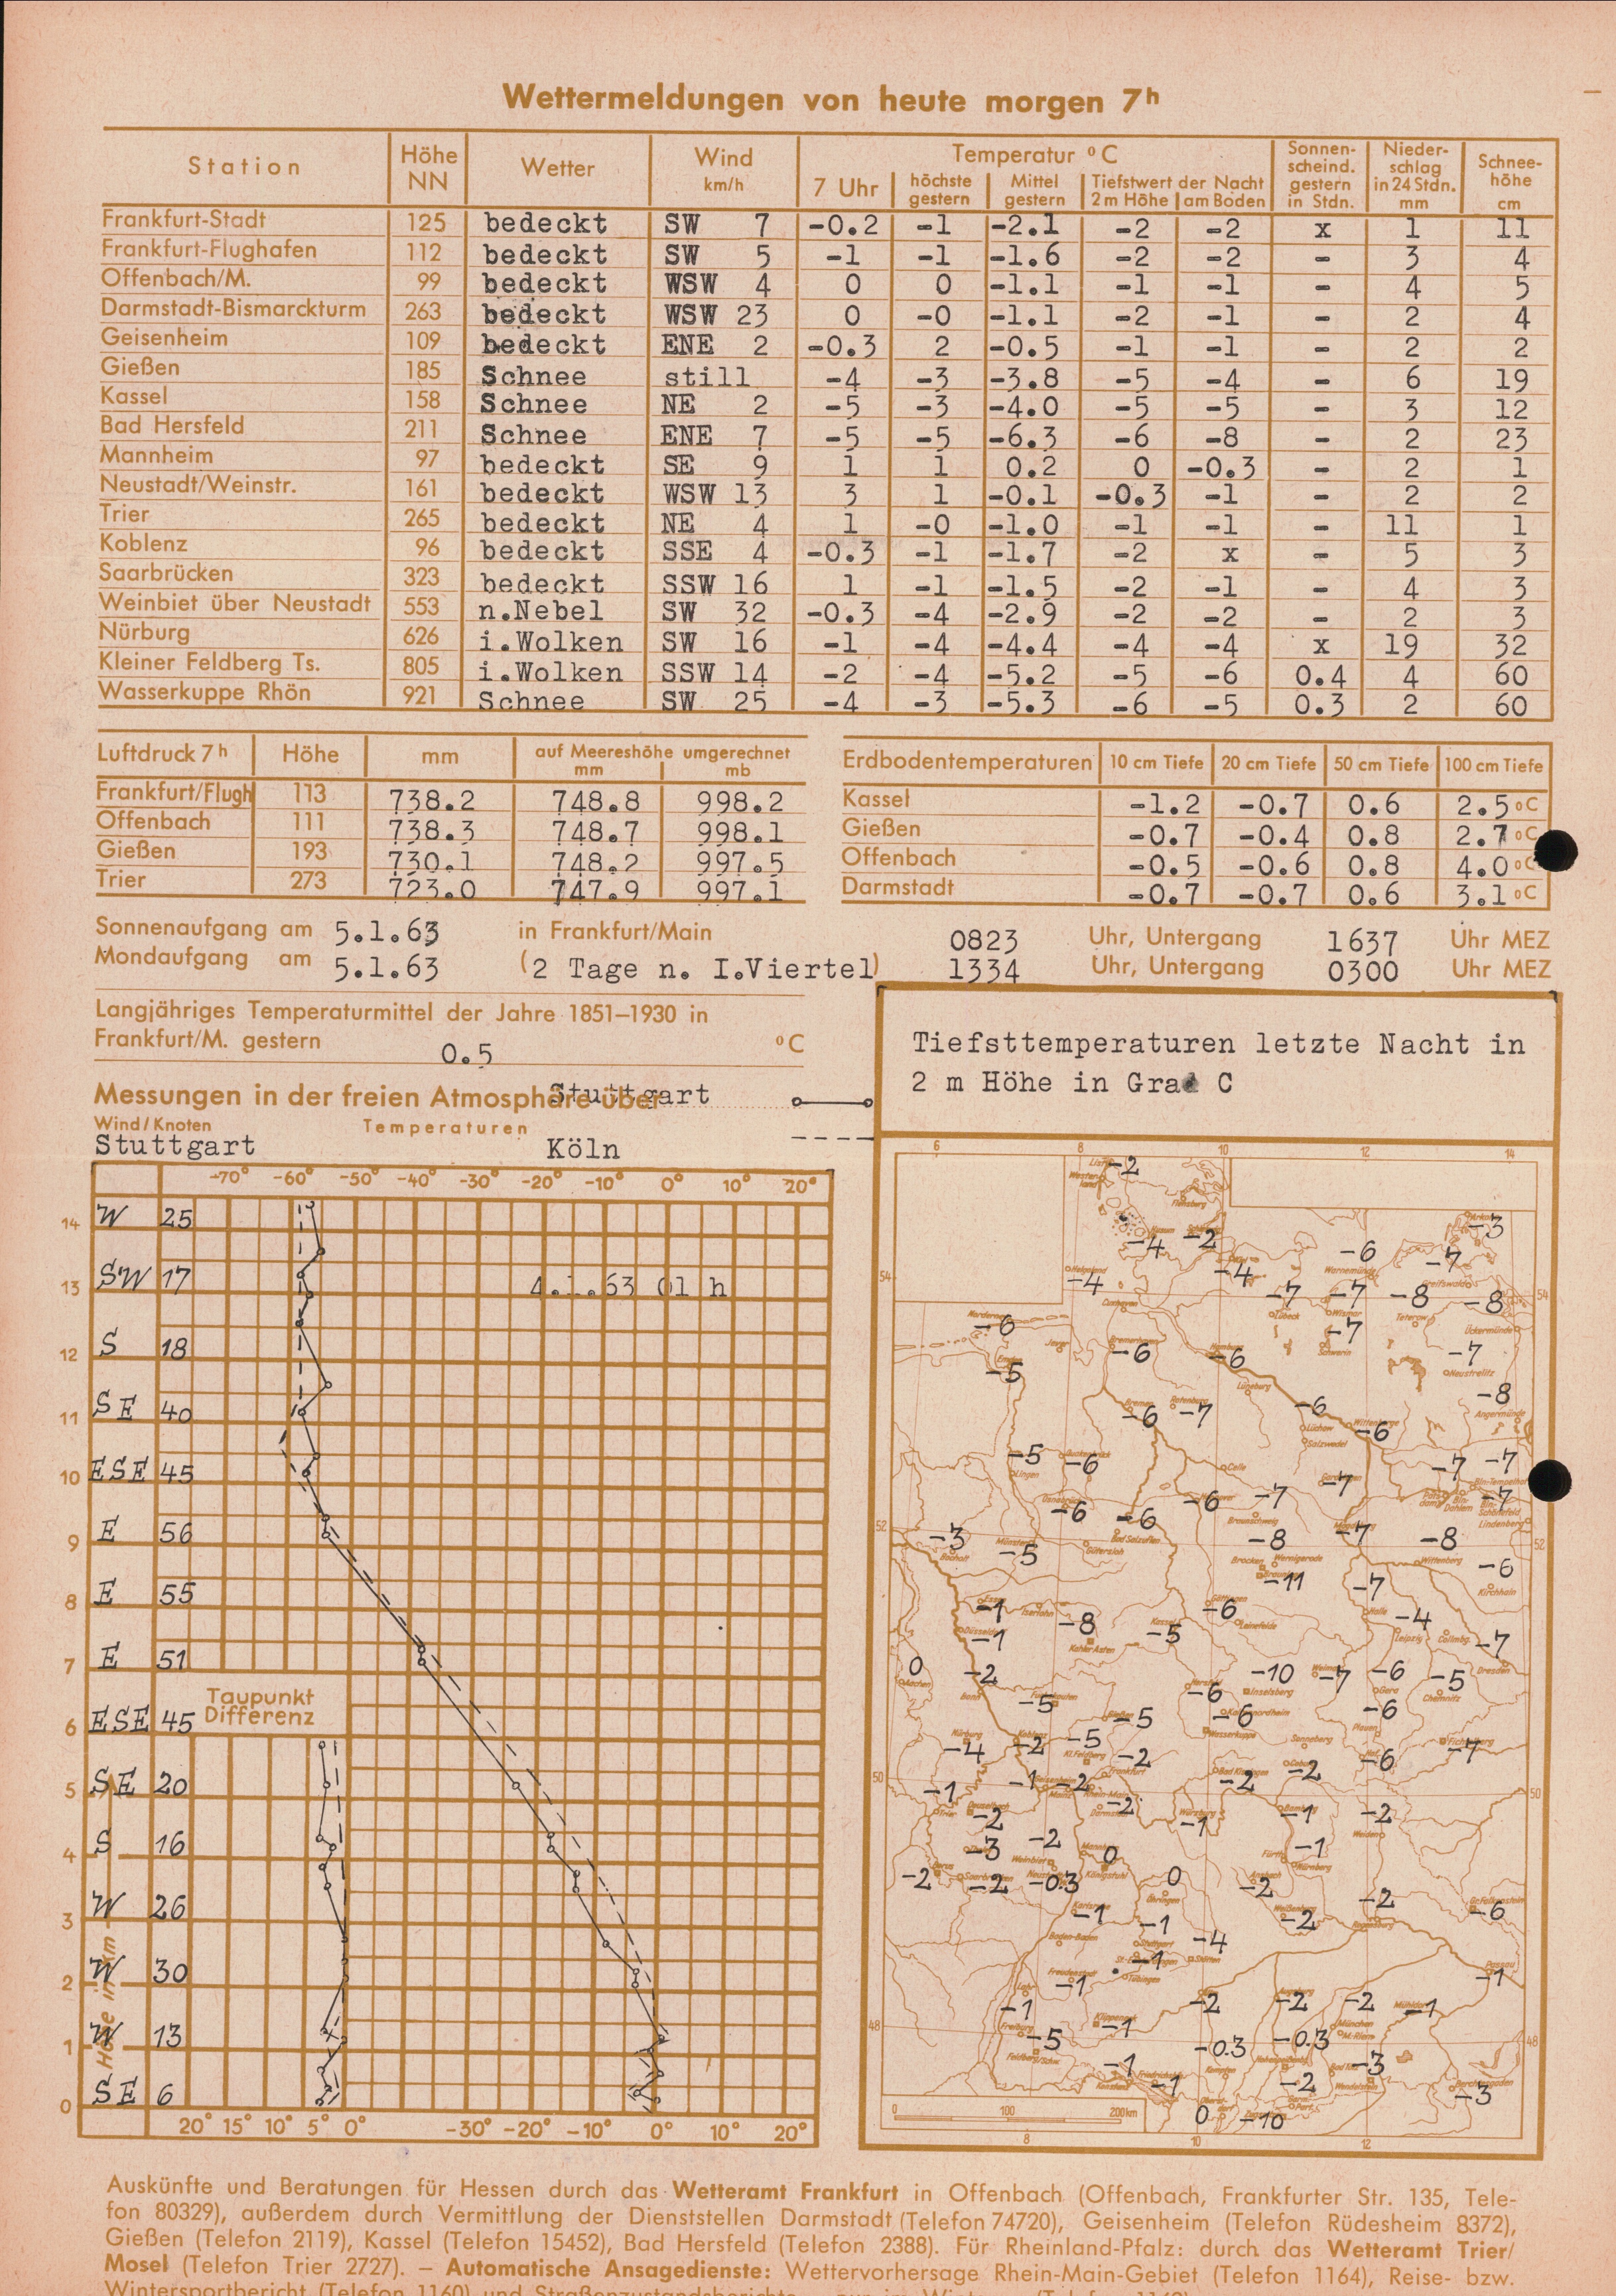 Wettermeldungen von heute morgen 7h
Station Höhe NN Wetter Wind km/h Temperatur °C Sonnenscheind. gestern in Stdn. Niederschlag in 24 Stdn. mm Schneehöhe cm
7 Uhr höchste gestern Mittel gestern Tiefstwert der Nacht 2 m Höhe am Boden
Frankfurt-Stadt 125 bedeckt SW 7 -0.2 -1 -2.1 -2 -2 x 1 11
Frankfurt-Flughafen 112 bedeckt SW 5 -1 -1 -1.6 -2 -2 - 3 4
Offenbach/M. 99 bedeckt WSW 4 0 0 -1.1 -1 -1 - 4 5
Darmstadt-Bismarckturm 263 bedeckt WSW 23 0 -0 -1.1 -2 -1 - 2 4
Geisenheim 109 bedeckt ENE 2 -0.3 2 -0.5 -1 -1 - 2 2
Gießen 185 Schnee still -4 -3 -3.8 -5 -4 - 6 19
Kassel 158 Schnee NE 2 -5 -3 -4.0 -5 -5 - 3 12
Bad Hersfeld 211 Schnee ENE 7 -5 -5 -6.3 -6 -8 - 2 23
Mannheim 97 bedeckt SE 9 1 1 0.2 0 -0.3 - 2 1
Neustadt/Weinstr. 161 bedeckt WSW 13 3 1 -0.1 -0.3 -1 - 2 2
Trier 265 bedeckt NE 4 1 -0 -1.0 -1 -1 - 11 1
Koblenz 96 bedeckt SSE 4 -0.3 -1 -1.7 -2 x - 5 3
Saarbrücken 323 bedeckt SSW 16 1 -1 -1.5 -2 -1 - 4 3
Weinbiet über Neustadt 553 n.Nebel SW 32 -0.3 -4 -2.9 -2 -2 - 2 3
Nürburg 626 i.Wolken SW 16 -1 -4 -4.4 -4 -4 x 19 32
Kleiner Feldberg Ts. 805 i.Wolken SSW 14 -2 -4 -5.2 -5 -6 0.4 4 60
Wasserkuppe Rhön 921 Schnee SW 25 -4 -3 -5.3 -6 -5 0.3 2 60
Luftdruck 7h Höhe mm auf Meereshöhe umgerechnet mm mb
Frankfurt/Flugh 113 738.2 748.8 998.2
Offenbach 111 738.3 748.7 998.1
Gießen 193 730.1 748.2 997.5
Trier 273 723.0 747.9 997.1
Erdbodentemperaturen 10 cm Tiefe 20 cm Tiefe 50 cm Tiefe 100 cm Tiefe
Kassel -1.2 -0.7 0.6 2.5 °C
Gießen -0.7 -0.4 0.8 2.7 °C
Offenbach -0.5 -0.6 0.8 4.0 °C
Darmstadt -0.7 -0.7 0.6 3.1 °C
Sonnenaufgang am 5.1.63 in Frankfurt/Main 0823 Uhr, Untergang 1637 Uhr MEZ
Mondaufgang am 5.1.63 (2 Tage n. I.Viertel) 1334 Uhr, Untergang 0300 Uhr MEZ
Langjähriges Temperaturmittel der Jahre 1851–1930 in
Frankfurt/M. gestern 0.5 °C
Messungen in der freien Atmosphäre über Stuttgart
Wind/Knoten Temperaturen
Stuttgart Köln
-70° -60° -50° -40° -30° -20° -10° 0° 10° 20°
14 W 25
13 SW 17 4.1.63 01 h
12 S 18
11 SE 40
10 ESE 45
9 E 56
8 E 55
7 E 51
Taupunkt
Differenz
6 ESE 45
5 SE 20
4 S 16
3 W 26
2 W 30
1 W 13
0 SE 6
Höhe in km
20° 15° 10° 5° 0° -30° -20° -10° 0° 10° 20°
Tiefsttemperaturen letzte Nacht in
2 m Höhe in Grad C
6 8 10 12 14
-2
-3
-4 -2 -6 -7
-4 -4
54 -7 -7 -8 -8 54
-6 -7
-6 -6 -7
-5
-8
-6 -7 -6 -6
-5 -6 -7 -7
-7
-6 -6 -6 -7 -7
52 -3 -5 -8 -7 -8 52
-11 -6
-7
-1 -8 -6 -4
-1 -5 -7
0 -2 -10 -7 -6 -5
-5 -6
-5 -6 -6
-4 -2 -5 -2 -6 -7
50 -1 -1 -2 -2 -2 50
-2 -2 -1 -1 -2
-3 -2 0 -1
-2 -2 -0.3 0 -2
-1 -2 -2 -6
-1 -4
-1 -1
-1 -2 -2 -2 -1
-1
48 -5 -1 -0.3 -0.3 48
-1 -3
-1 -2 -3
0 -10
0 100 200 km
8 10 12
Auskünfte und Beratungen für Hessen durch das Wetteramt Frankfurt in Offenbach (Offenbach, Frankfurter Str. 135, Tele-
fon 80329), außerdem durch Vermittlung der Dienststellen Darmstadt (Telefon 74720), Geisenheim (Telefon Rüdesheim 8372),
Gießen (Telefon 2119), Kassel (Telefon 15452), Bad Hersfeld (Telefon 2388). Für Rheinland-Pfalz: durch das Wetteramt Trier/
Mosel (Telefon Trier 2727). – Automatische Ansagedienste: Wettervorhersage Rhein-Main-Gebiet (Telefon 1164), Reise- bzw.
Wintersportbericht (Telefon 1160) und Straßenzustandsberichte